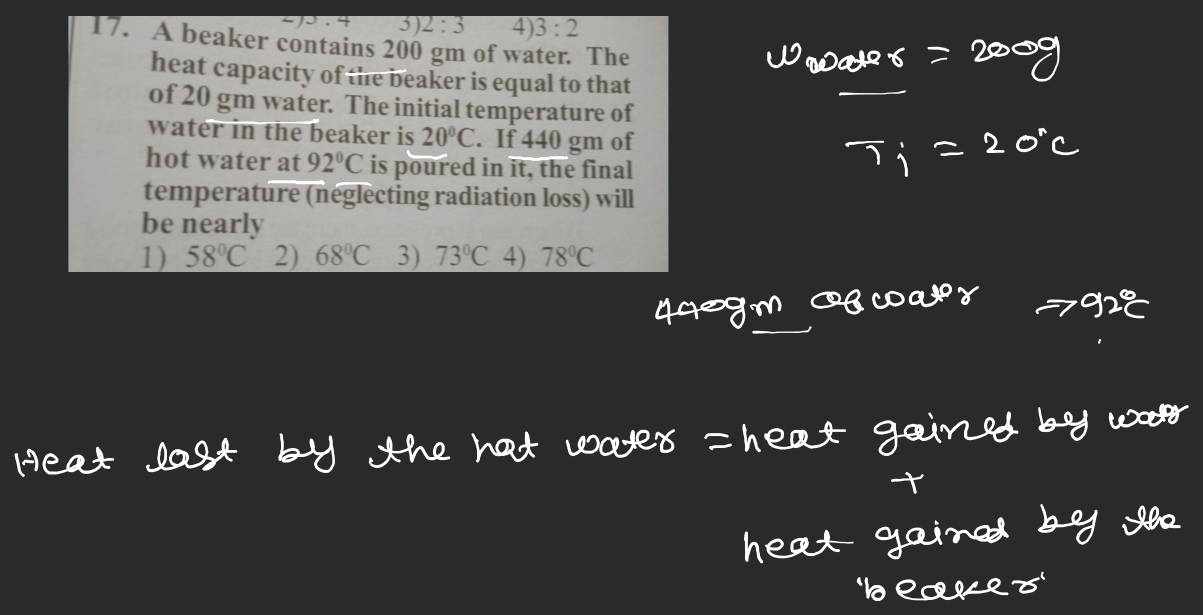 2)3 : 4 3)2 : 3 4)3 : 2
17. A beaker contains 200 gm of water. The
heat capacity of the beaker is equal to that
of 20 gm water. The initial temperature of
water in the beaker is 20⁰C. If 440 gm of
hot water at 92⁰C is poured in it, the final
temperature (neglecting radiation loss) will
be nearly
1) 58⁰C 2) 68⁰C 3) 73⁰C 4) 78⁰C
Wwater = 200g
Ti = 20°C
440gm of water => 92°C
Heat lost by the hot water = heat gained by water
+
heat gained by the
'beaker'